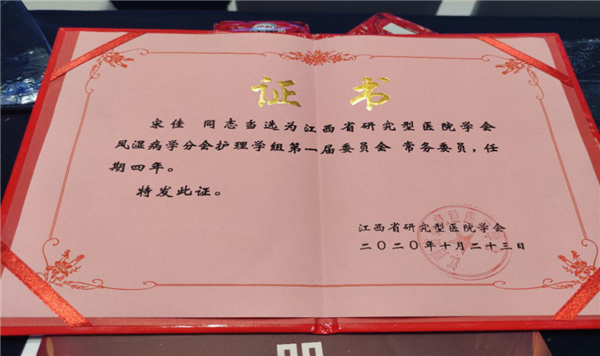 证书
宋佳 同志当选为江西省研究型医院学会
风湿病学分会护理学组第一届委员会 常务委员,任
期四年。
特发此证。
江西省研究型医院学会
二〇二〇年十月二十三日